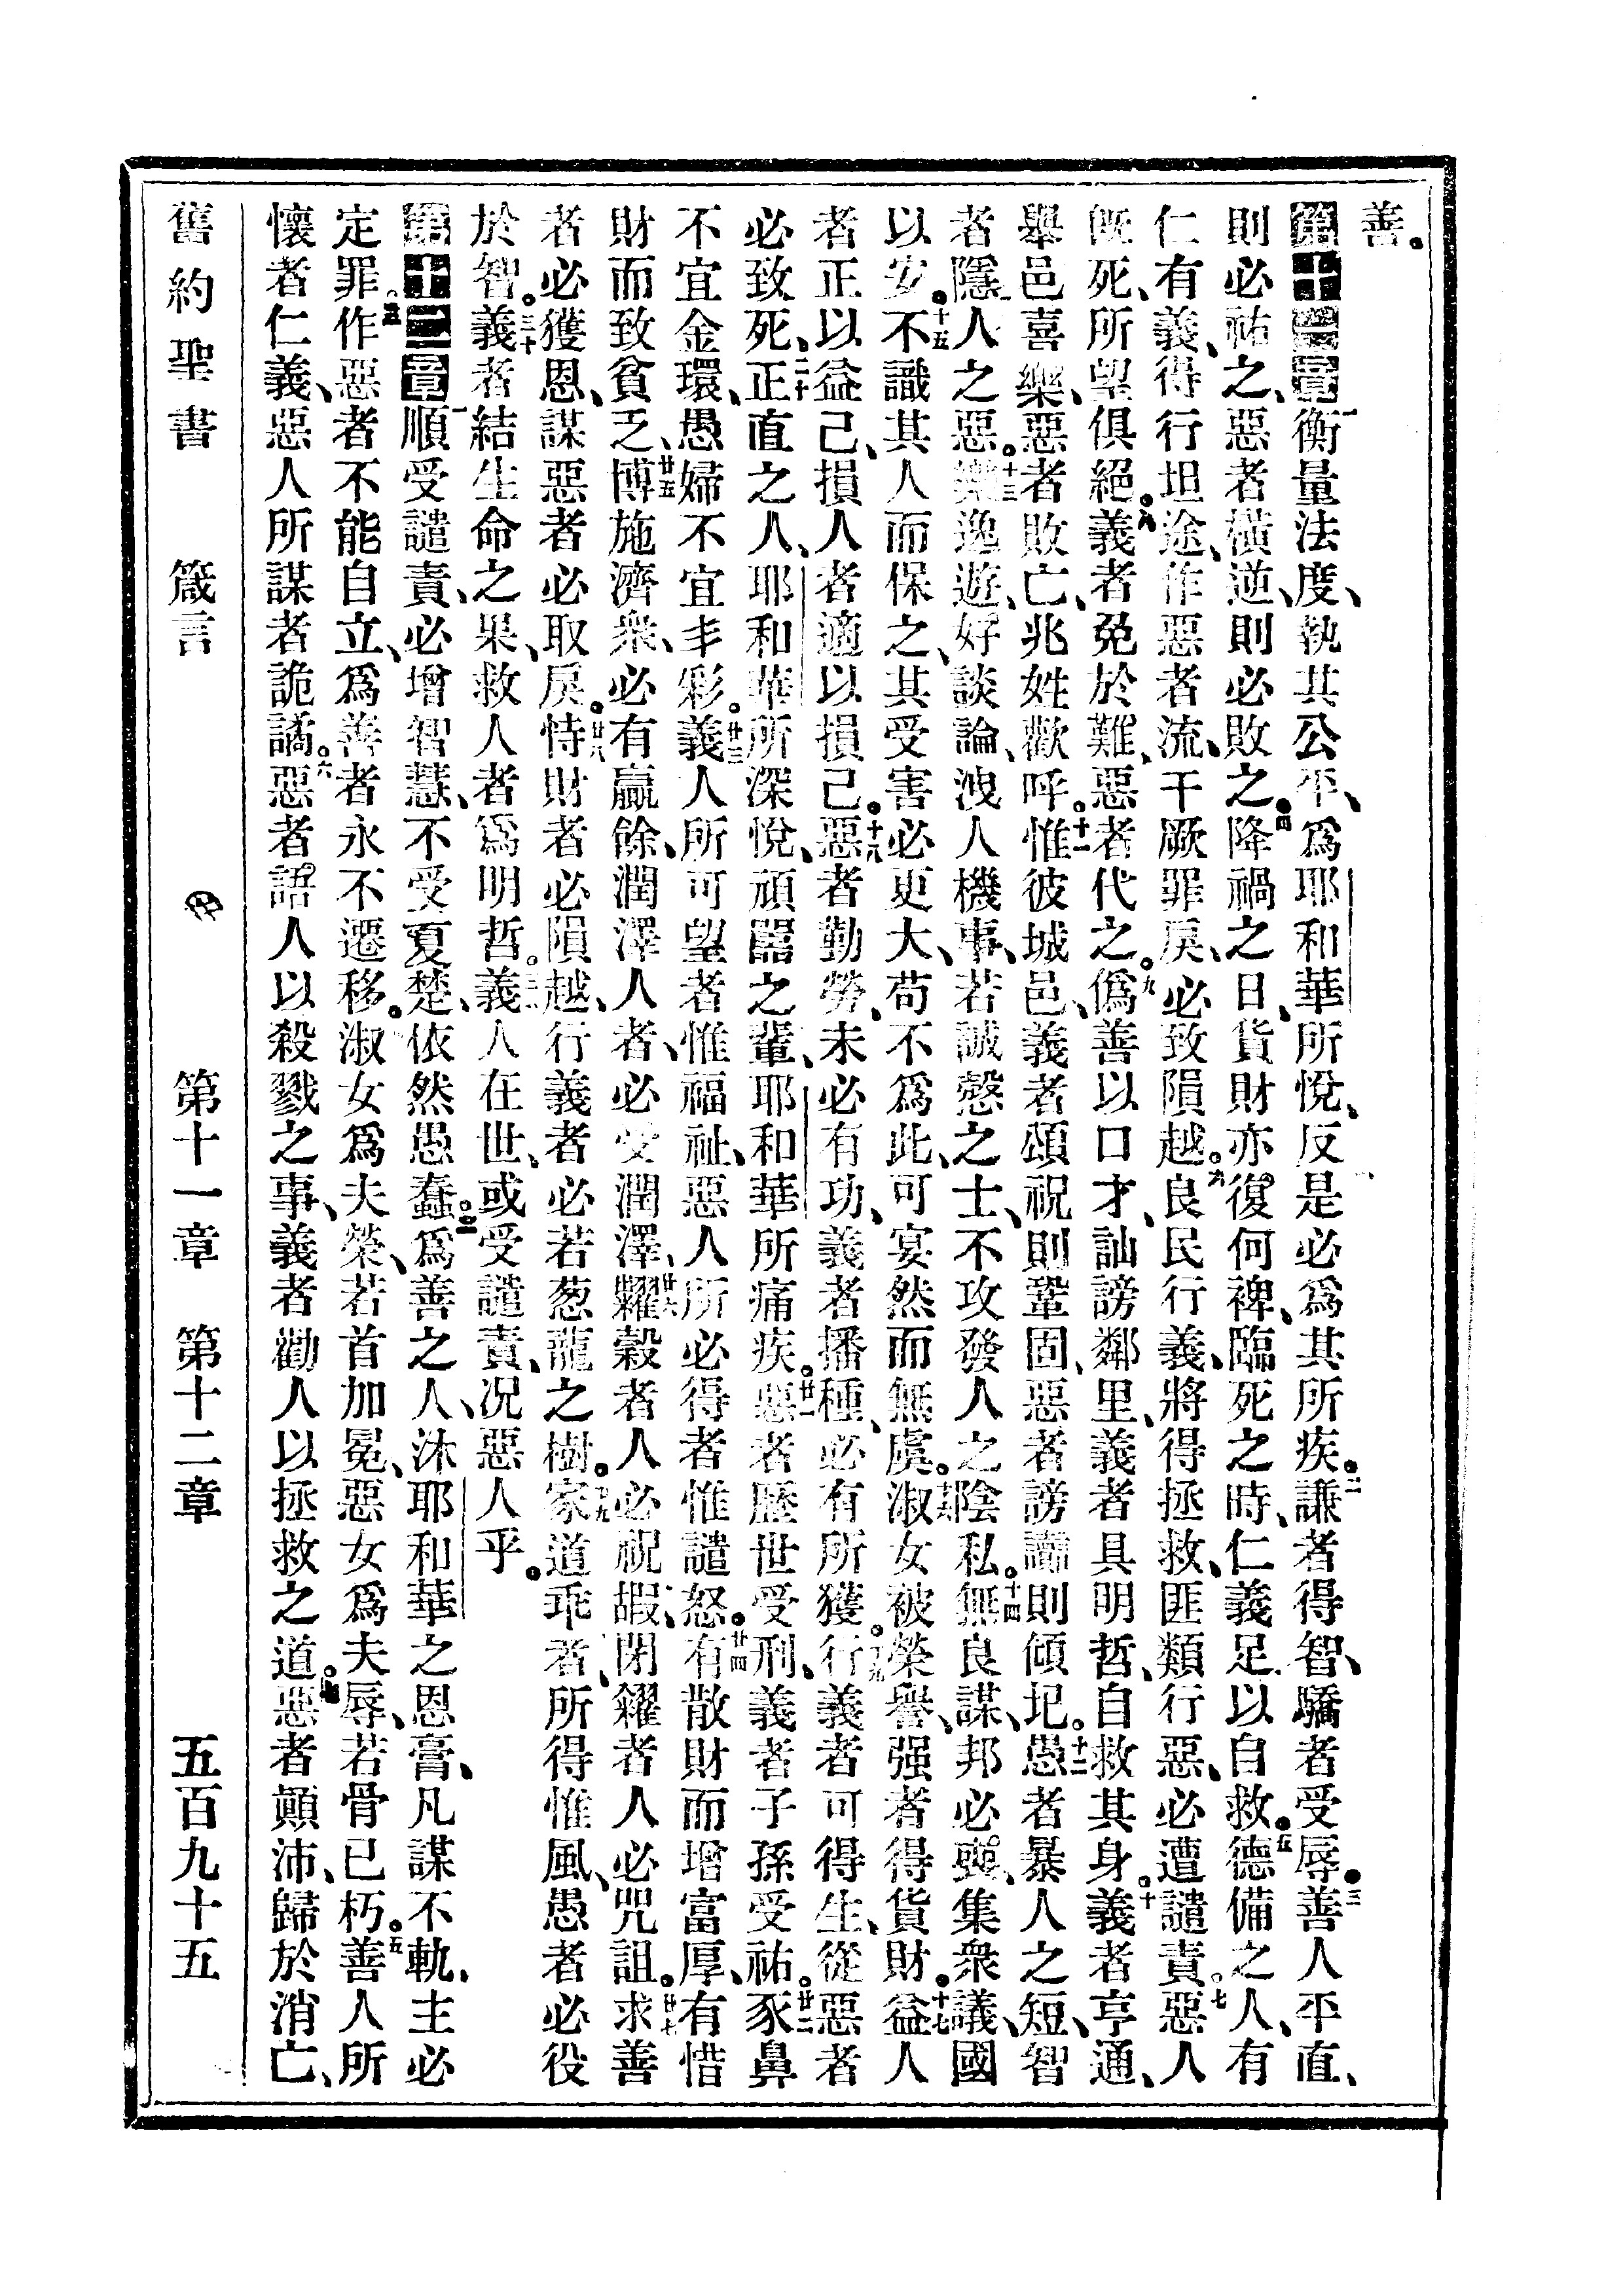 善。
第十一章一衡量法度、執其公平、爲耶和華所悅、反是必爲其所疾。二謙者得智、驕者受辱。三善人平直、
則必祐之、惡者橫逆、則必敗之。四降禍之日、貨財亦復何裨、臨死之時、仁義足以自救。五德備之人、有
仁有義、得行坦途、作惡者流、干厥罪戾、必致隕越。六良民行義、將得拯救、匪類行惡、必遭譴責。七惡人
旣死、所望俱絕。八義者免於難、惡者代之。九僞善以口才、訕謗鄰里、義者具明哲、自救其身。十義者亨通、
舉邑喜樂、惡者敗亡、兆姓歡呼。十一惟彼城邑、義者頌祝則鞏固、惡者謗讟則傾圮。十二愚者暴人之短、智
者隱人之惡。十三樂逸遊、好談論、洩人機事、若誠慤之士、不攻發人之陰私。十四無良謀、邦必喪、集衆議、國
以安。十五不識其人而保之、其受害必更大、苟不爲此、可宴然而無虞。十六淑女被榮譽、强者得貨財。十七益人
者正以益己、損人者適以損己。十八惡者勤勞、未必有功、義者播種、必有所獲。十九行義者可得生、從惡者
必致死。二十正直之人、耶和華所深悅、頑嚚之輩、耶和華所痛疾。廿一惡者歷世受刑、義者子孫受祐。廿二豕鼻
不宜金環、愚婦不宜丰彩。廿三義人所可望者惟福祉、惡人所必得者惟譴怒。廿四有散財而增富厚、有惜
財而致貧乏、廿五博施濟衆、必有贏餘、潤澤人者、必受潤澤、廿六糶穀者人必祝嘏、閉糴者人必咒詛。廿七求善
者必獲恩、謀惡者必取戾。廿八恃財者必隕越、行義者必若葱蘢之樹。廿九家道乖者、所得惟風、愚者必役
於智。三十義者結生命之果、救人者爲明哲。三一義人在世、或受譴責、况惡人乎。
第十二章一順受譴責、必增智慧、不受夏楚、依然愚蠢。二爲善之人、沐耶和華之恩膏、凡謀不軌、主必
定罪。三作惡者不能自立、爲善者永不遷移。淑女爲夫榮、若首加冕、惡女爲夫辱、若骨已朽。五善人所
懷者仁義、惡人所謀者詭譎。六惡者語人以殺戮之事、義者勸人以拯救之道。七惡者顚沛、歸於消亡、
舊約聖書 箴言 第十一章 第十二章 五百九十五